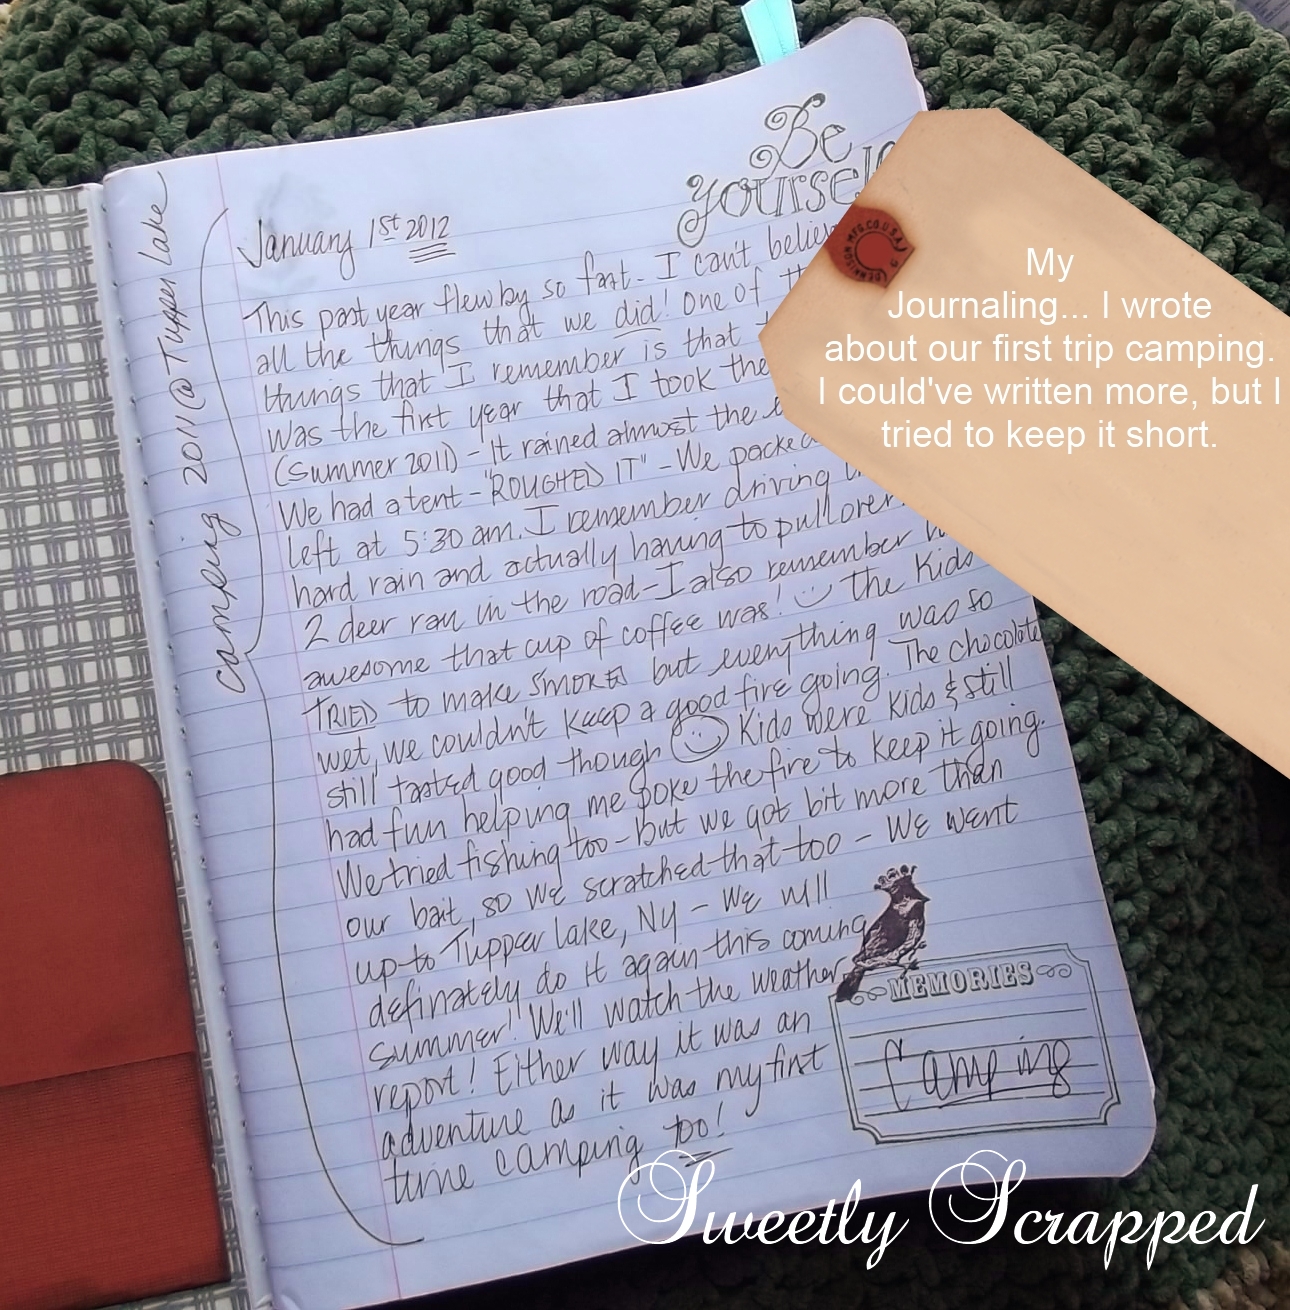 Be
yourself
January 1st 2012
This past year flew by so fast - I can't believ
all the things that we did! One of th
things that I remember is that t
was the first year that I took the
(summer 2011) - It rained almost the
We had a tent - "ROUGHED IT" - We packed
left at 5:30 am. I remember driving
hard rain and actually having to pull over
2 deer ran in the road - I also remember h
awesome that cup of coffee was! The kids
TRIED to make smores but everything was so
wet, we couldn't keep a good fire going. The chocolate
still tasted good though Kids were kids & still
had fun helping me poke the fire to keep it going.
We tried fishing too - but we got bit more than
our bait, so we scratched that too - We went
up to Tupper Lake, NY - We will
definately do it again this coming
summer! We'll watch the weather
report! Either way it was an
adventure as it was my first
time camping too!
Camping 2011 @ Tupper Lake
MEMORIES
Camping
DENNISON MFG.CO.U.S.A.
My
Journaling... I wrote
about our first trip camping.
I could've written more, but I
tried to keep it short.
Sweetly Scrapped